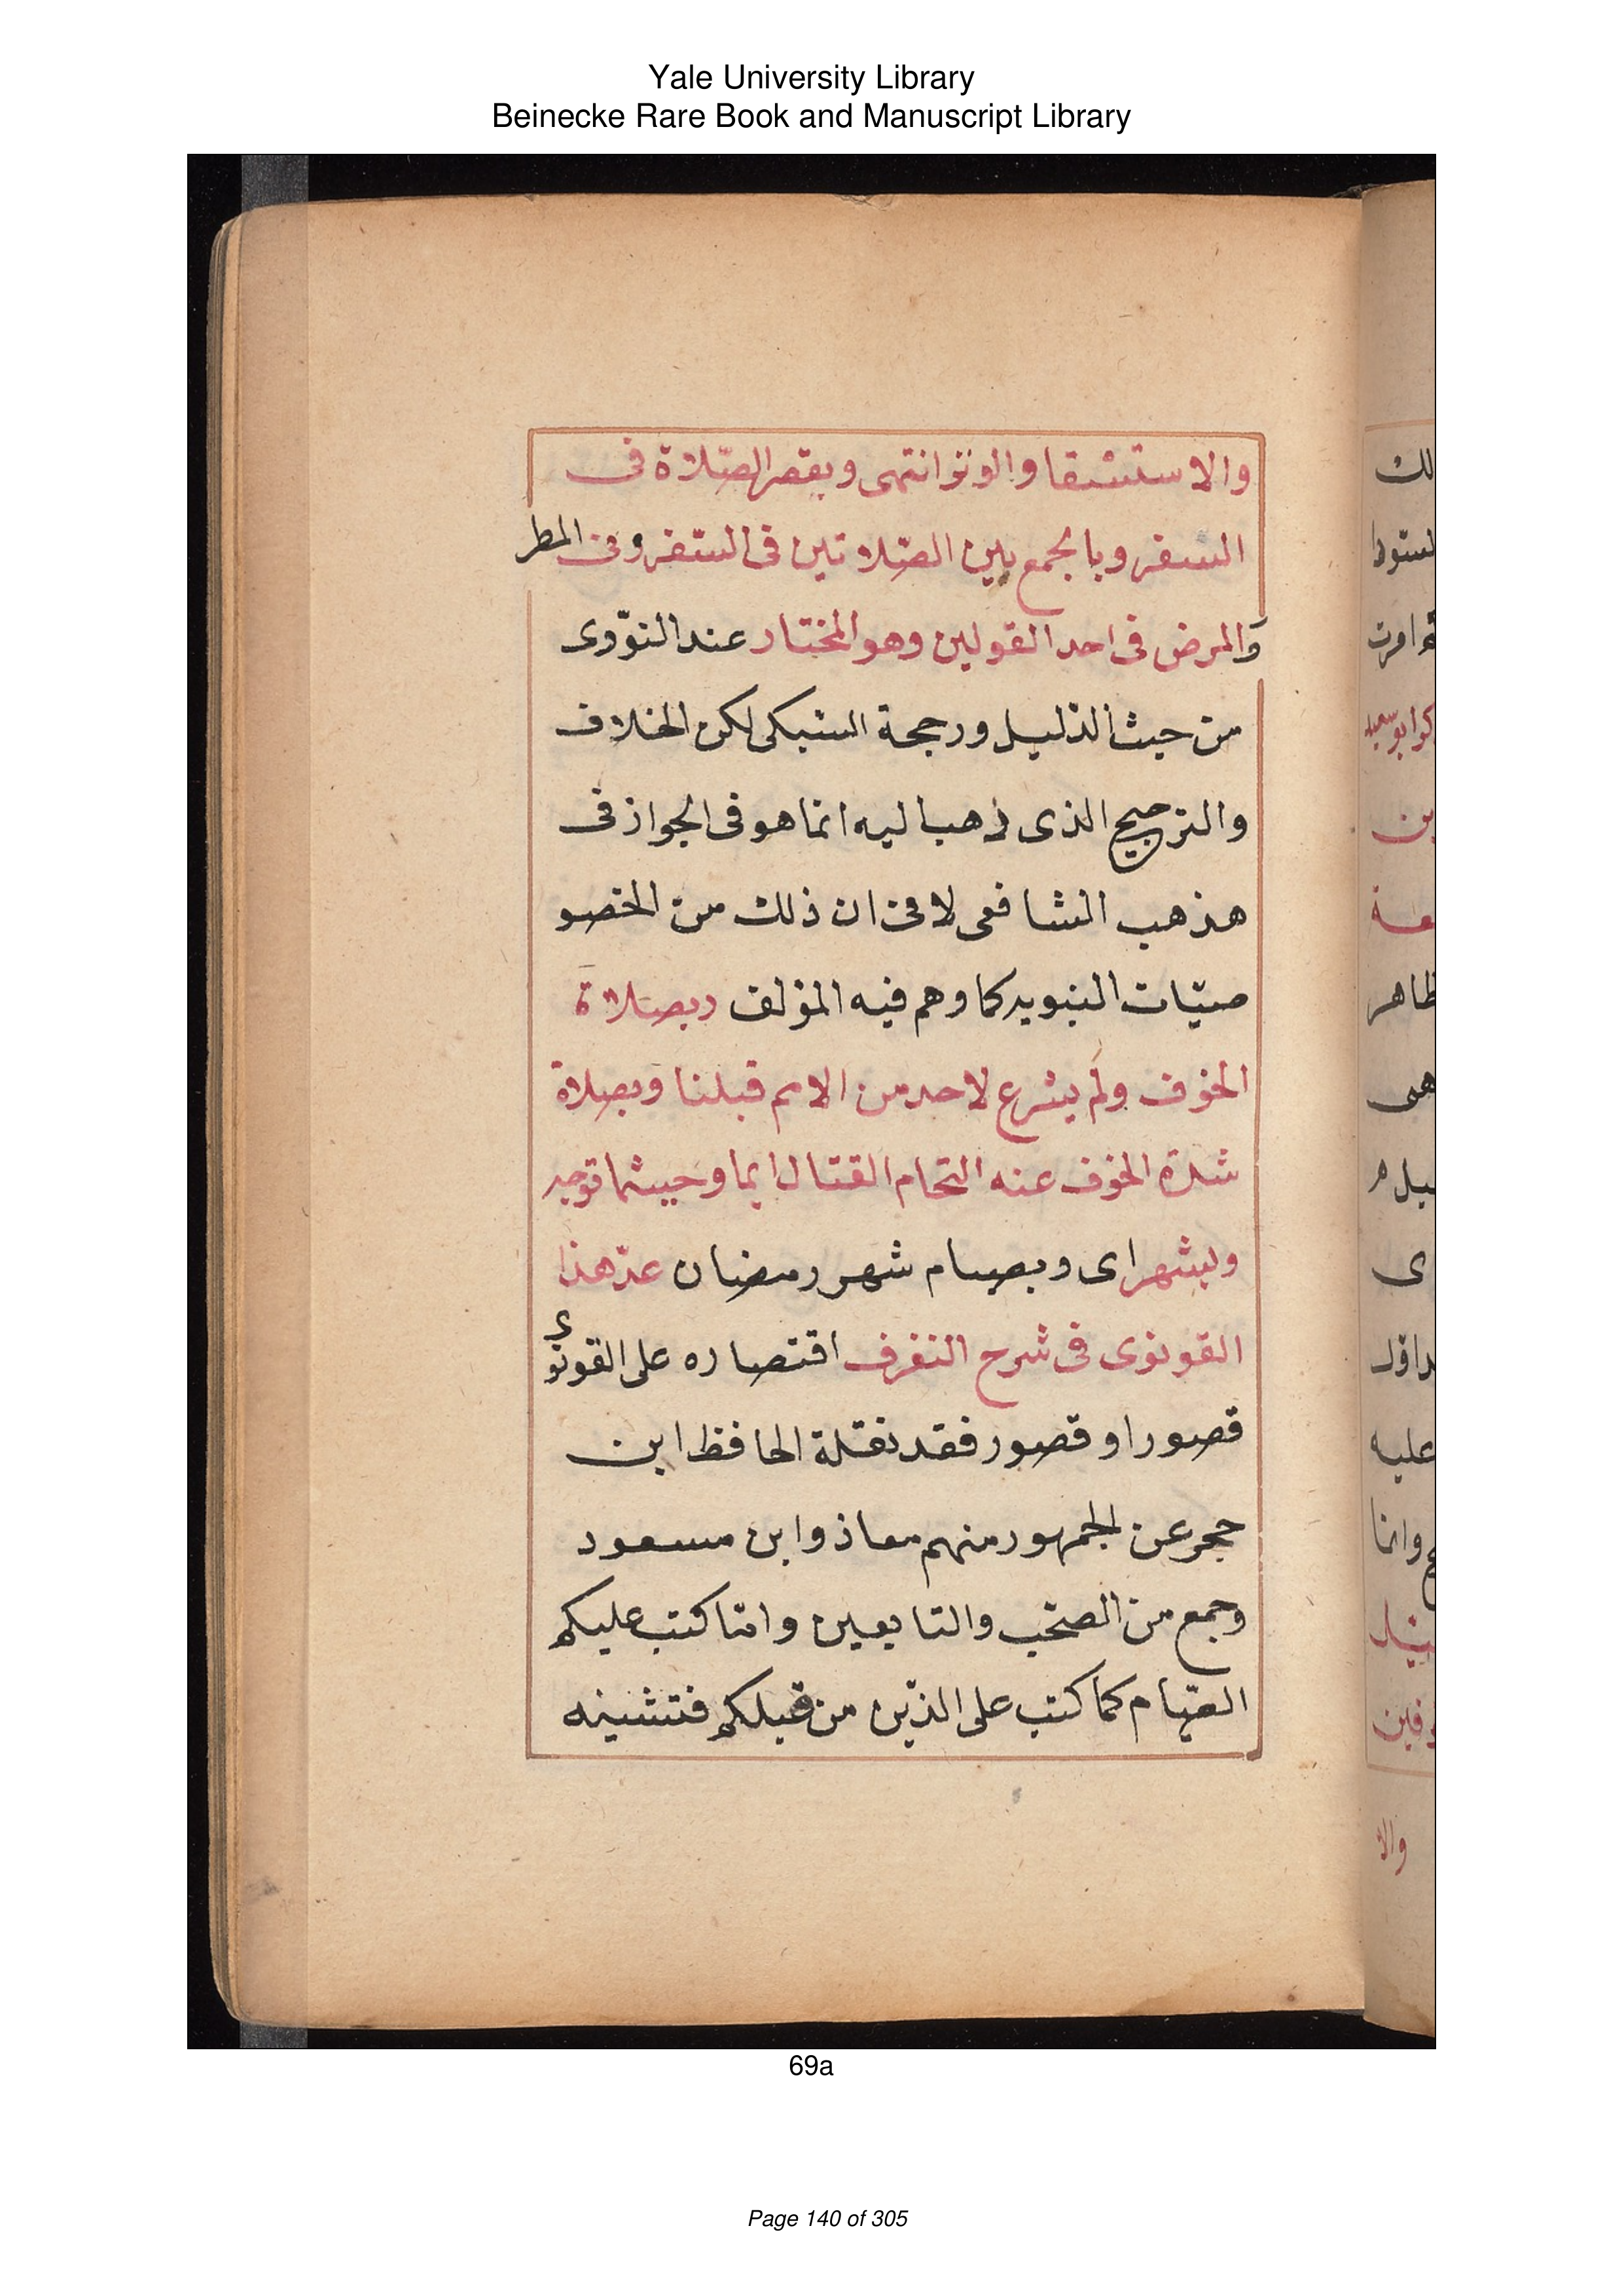 Yale University Library
Beinecke Rare Book and Manuscript Library
والاستشقا والوتر انتهى وبقصر الصّلاة فى
السفر وبالجمع بين الصّلاتين فى السّفر وفى المطر
والمرض فى احد القولين وهو المختار عند النوّوى
من حيث الذليل ورجحة السبكى لكن الخلاف
والترجيح الذى ذهب اليه انما هو فى الجواز فى
مذهب الشافعى لا فى ان ذلك من الخصو
صيّات النبويه كما وهم فيه المؤلف وبصلاة
الخوف ولم يشرع لاحد من الامم قبلنا وبصلاة
شدة الخوف عنه التحام القتال ايما وحيثما توجه
وبشهر اى وبصيام شهر رمضان عدّ هذا
القونوى فى شرح التغرف اقتصاره على القونوى
قصور او قصور فقد نقلة الحافظ ابن
حجر عن الجمهور منهم معاذ وابن مسعود
وجمع من الصّحب والتابعين وامّا كتب عليكم
الصّيام كما كتب على الذّين من قبلكم فتشبيه
لك
ظاهر
هى
ى
عليه
وانما
والا
69a
Page 140 of 305